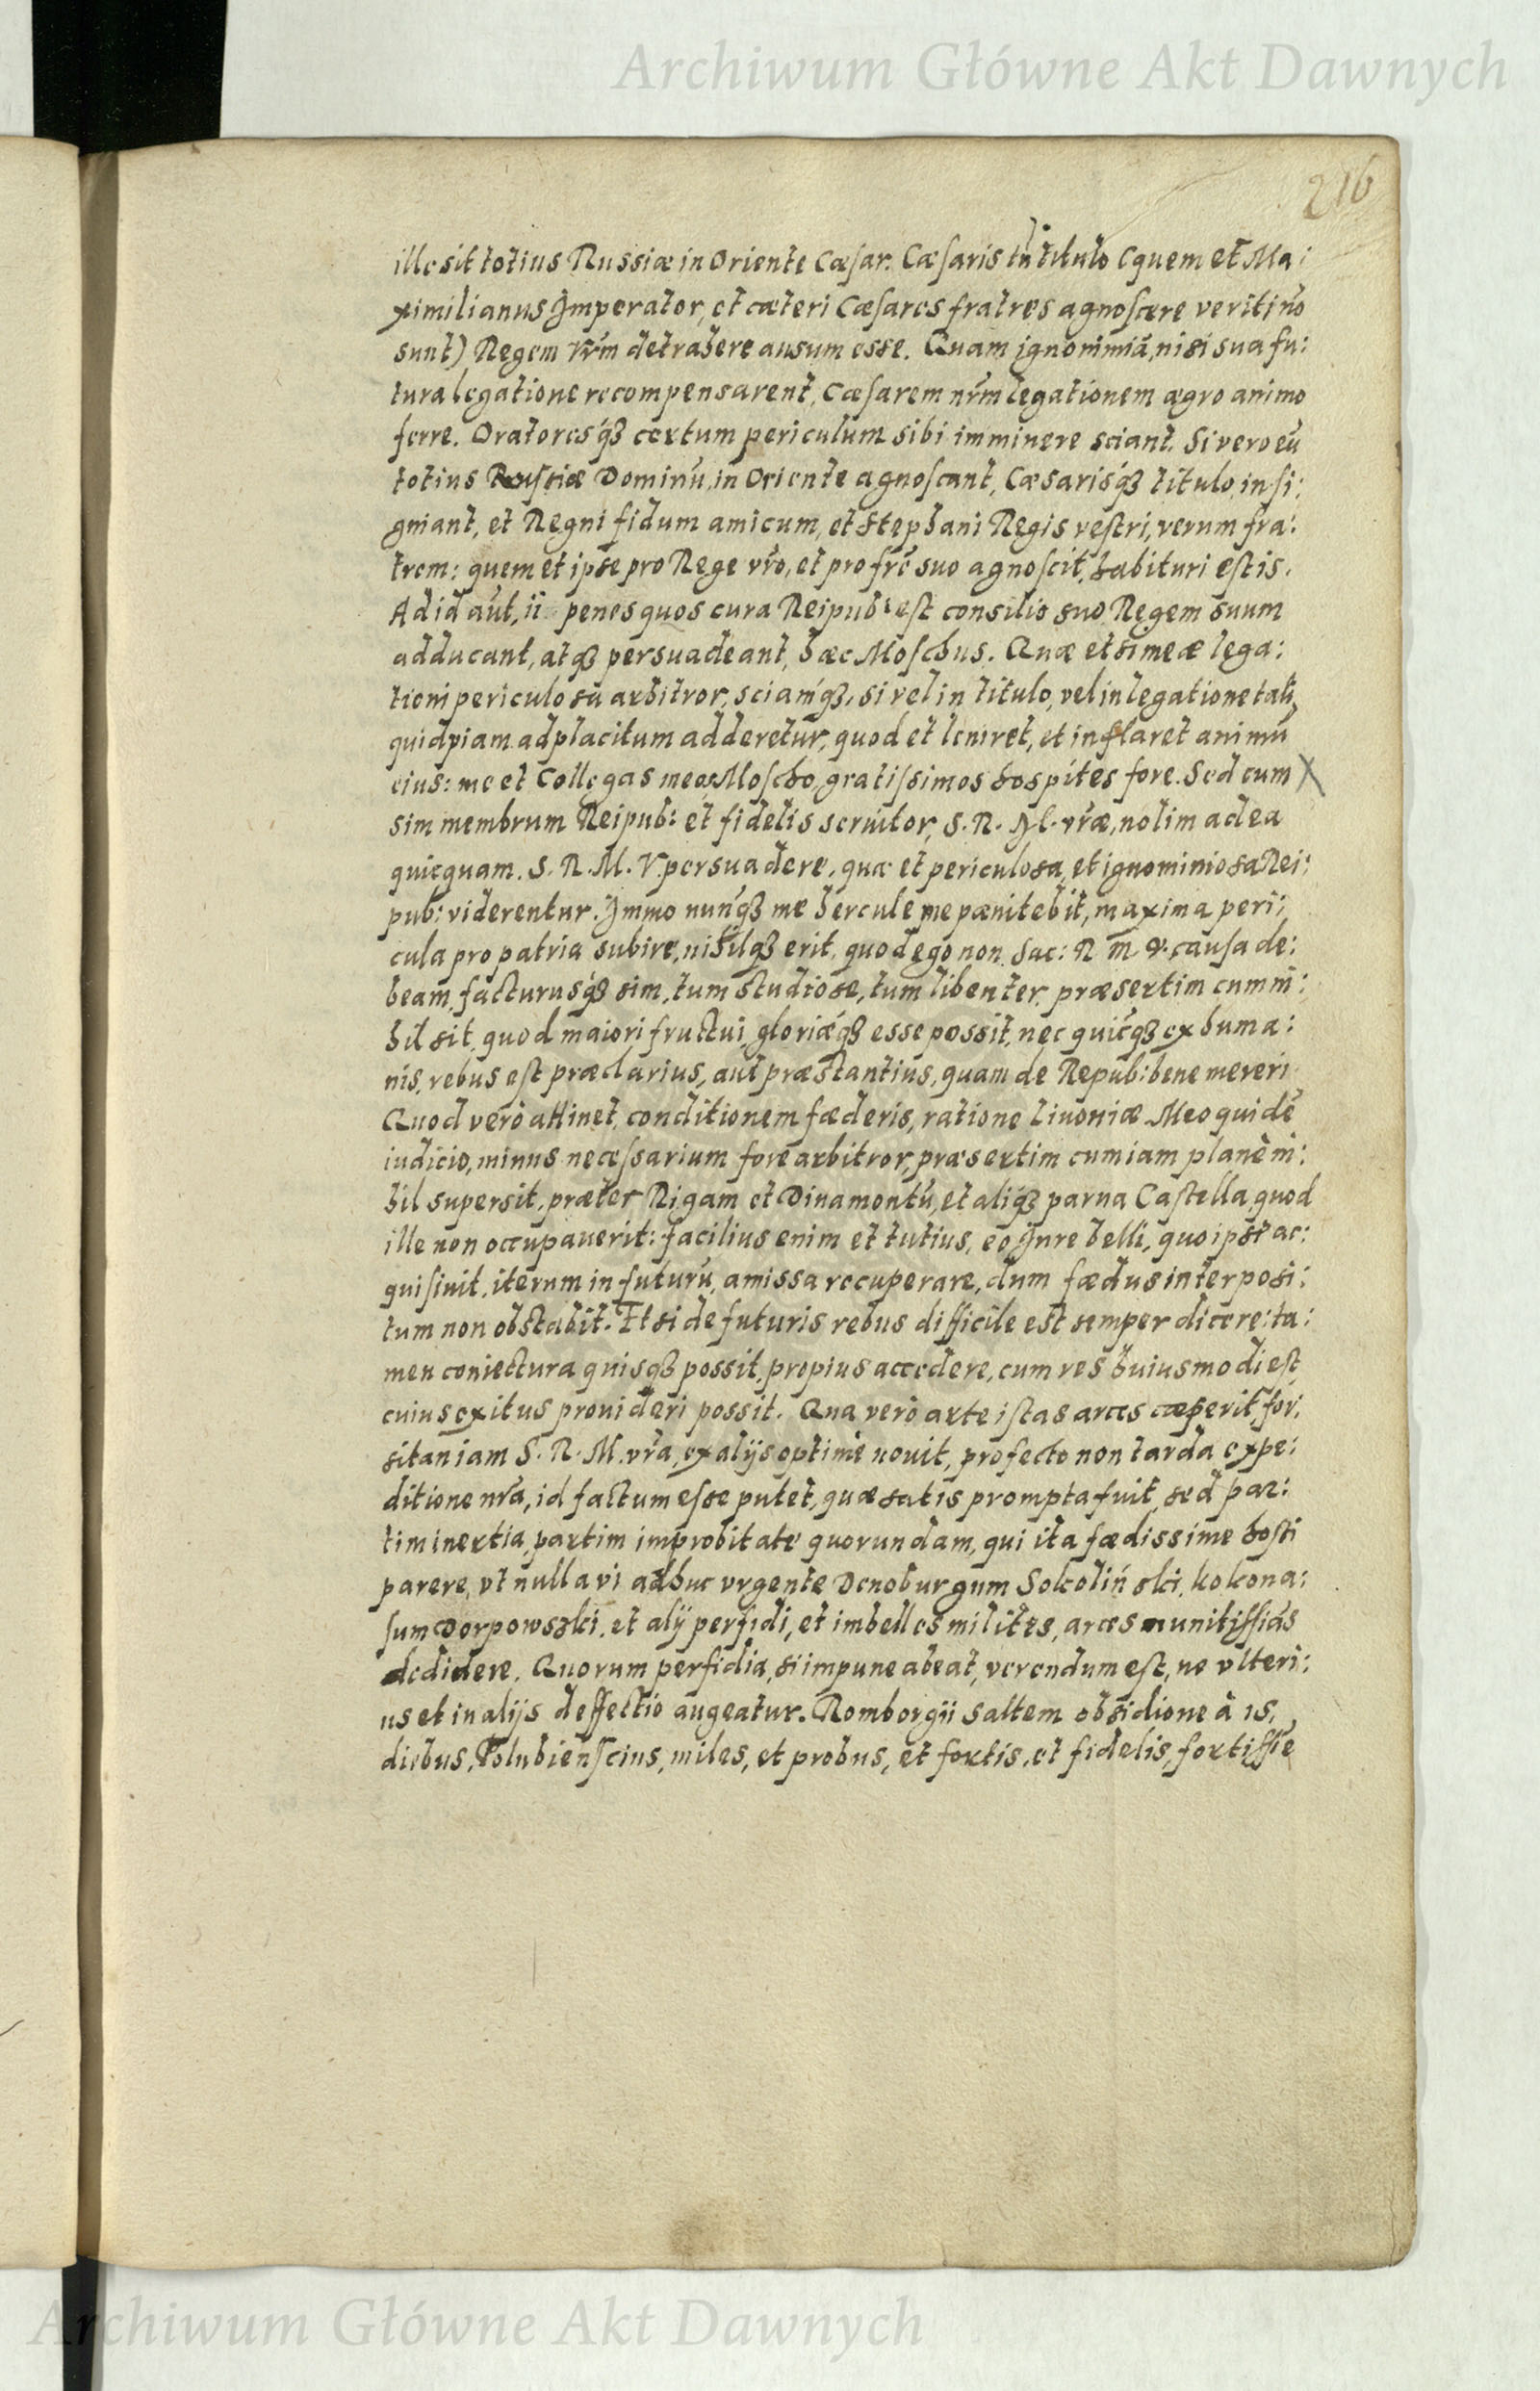 Archiwum Główne Akt Dawnych
216
ille sit totius Russiæ in Oriente Cæsar. Cæsaris titulo (quem et Ma:
ximilianus Imperator, et cæteri Cæsares fratres agnoscere veriti nō
sunt) Regem vr̃m detrahere ausum esse. Quam ignominiā, nisi sua fu:
tura legatione recompensarent, Cæsarem nr̃m legationem ægro animo
ferre. Oratoresq́ꝫ certum periculum sibi imminere sciant. Si vero eū
totius Russiæ Dominū, in Oriente agnoscant, Cæsarisq́ꝫ titulo, insi:
gniant, et Regni fidum amicum, et Stephani Regis vestri, verum fra:
trem: quem et ipse pro Rege vr̃o, et pro fr̃e suo agnoscit, habituri estis.
Ad id aut̃, ii penes quos cura Reipub: est consilio suo Regem suum
adducant, atqꝫ persuadeant, hæc Moschus. Quæ etsi meæ lega:
tioni periculosa arbitror, sciamq́ꝫ, si vel in titulo, vel in legatione tali,
quidpiam ad placitum adderetur, quod et leniret, et inflaret animū
eius: me et Collegas meos Moscho, gratissimos hospites fore. Sed cum X
sim membrum Reipub: et fidelis seruitor, S. R. M. vr̃æ, nolim ad ea
quicquam. S. R. M. V. persuadere, quæ et periculosa, et ignominiosa Rei:
pub: viderentur. Immo nunq́ꝫ me hercule me pænitebit, maxima peri:
cula pro patria subire, nihilqꝫ erit, quod ego non Sac: R M V. causa de:
beam, facturusq́ꝫ sim, tum studiose, tum libenter, præsertim cum ni:
hil sit, quod maiori fructui, gloriæq́ꝫ esse possit, nec quicq́ꝫ ex huma:
nis rebus est præclarius, aut præstantius, quam de Repub: bene mereri.
Quod vero attinet, conditionem fæderis, ratione Liuoniæ Meo quidē
iudicio, minus necessarium fore arbitror, præsertim cum iam planè ni:
hil supersit, præter Rigam et Dinamontū, et aliq́ꝫ parua Castella, quod
ille non occupauerit: facilius enim et tutius, eo Iure belli, quo ipse ac:
quisiuit, iterum in futurū, amissa recuperare, dum fædus interposi:
tum non obstabit. Etsi de futuris rebus difficile est semper dicere: ta:
men coniectura quisqꝫ possit, propius accedere, cum res huiusmodi est,
cuius exitus prouideri possit. Qua verò arte istas arces cæperit, for:
sitan iam S. R. M. vr̃a, ex alijs optimè nouit, profecto non tarda expe:
ditione nr̃a, id factum esse putet, quæ satis prompta fuit, sed par:
tim inertia, partim improbitate quorundam, qui ita fædissime hosti
parere, vt nulla vi adhuc vrgente Denoburgum Sokoliński, Kokona:
sum Dorpowszki, et alij perfidi, et imbelles milites, arces munitissīas
dedidere. Quorum perfidia, si impune abeat, verendum est, ne vlteri:
us et in alijs deffectio augeatur. Romborgii saltem obsidione à 15,
diebus, Polubienscius, miles, et probus, et fortis, et fidelis, fortissīe
Archiwum Główne Akt Dawnych